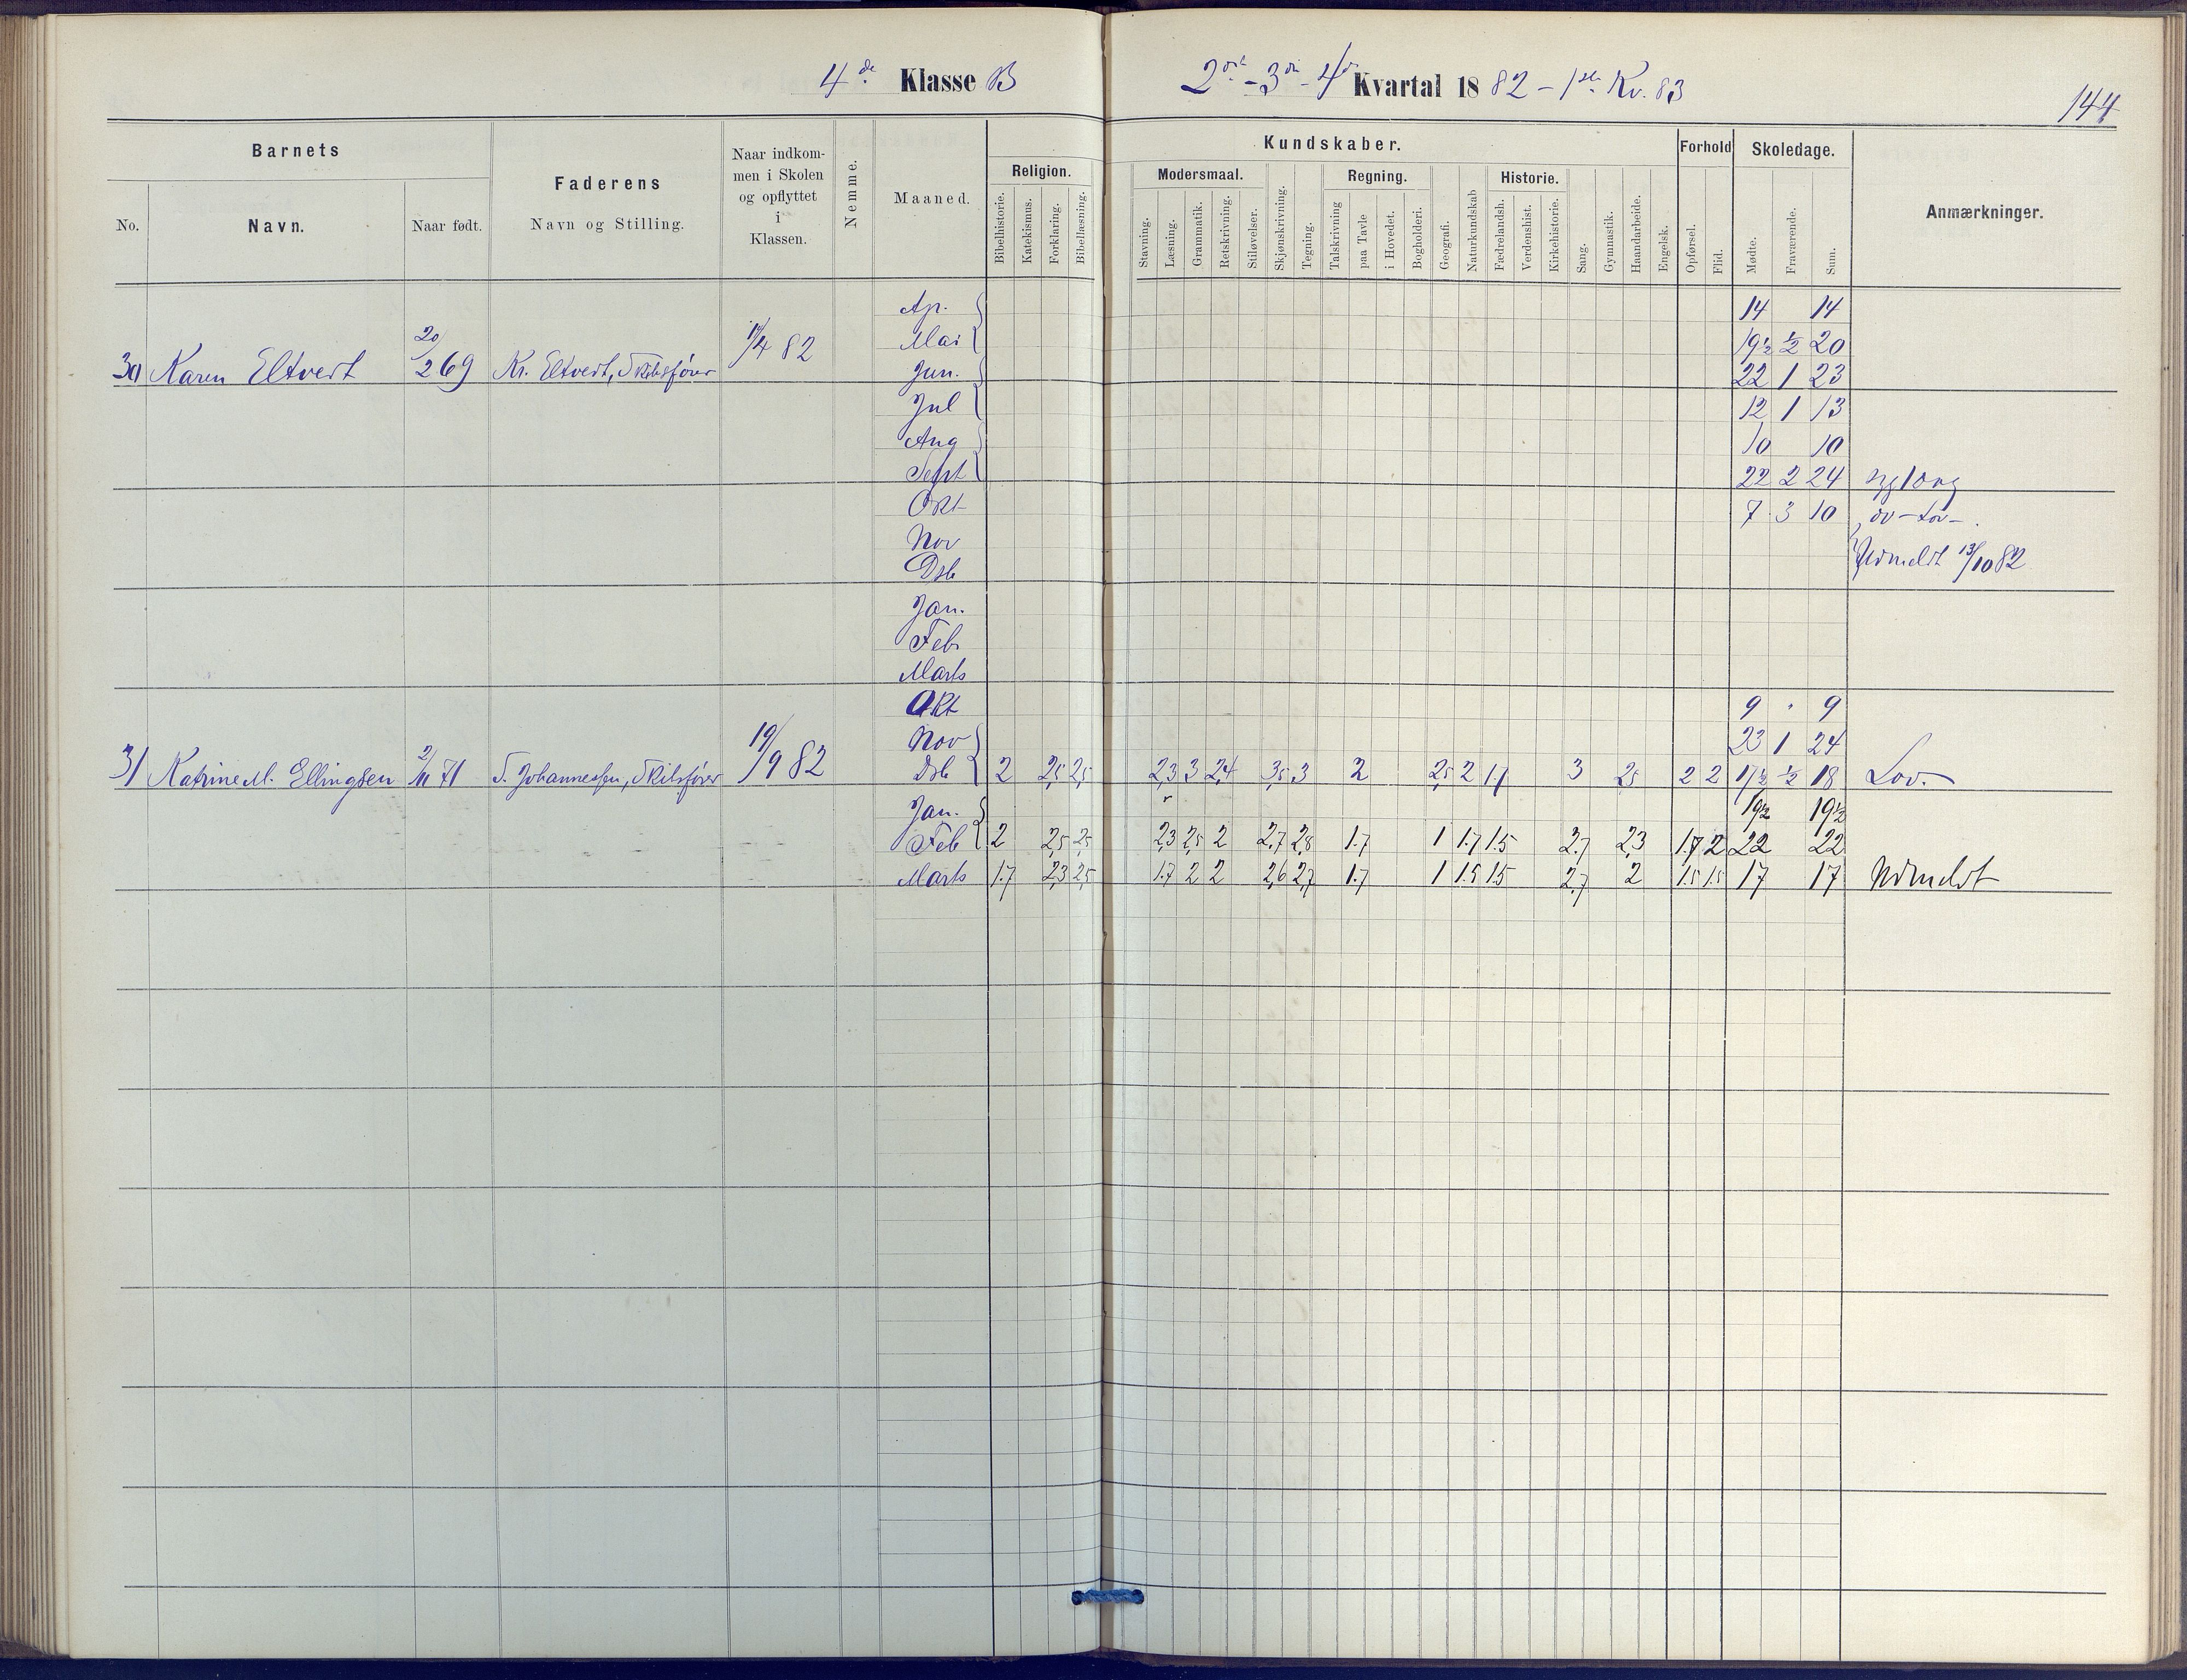 4de Klasse B 2det - 3die - 4de Kvartal 1882 - 1ste Kv. 83
144
Barnets
Faderens
Naar indkom-
men i Skolen
og opflyttet
i
Klassen.
Nemme.
Maaned.
Kundskaber.
Forhold
Skoledage.
Anmærkninger.
No.
Navn.
Naar født.
Navn og Stilling.
Religion.
Modersmaal.
Regning.
Historie.
Bibelhistorie.
Katekismus.
Forklaring.
Bibellæsning.
Stavning.
Læsning.
Grammatik.
Retskrivning.
Stiløvelser.
Skjønskrivning.
Tegning.
Talskrivning
paa Tavle
i Hovedet.
Bogholderi.
Geografi.
Naturkundskab
Fædrelandsh.
Verdenshist.
Kirkehistorie.
Sang.
Gymnastik.
Haandarbeide.
Engelsk.
Opførsel.
Flid.
Mødte.
Fraværende.
Sum.
Ap. 14 14
Mai 19½ ½ 20
30 Karen Eltvert 20/2 69 Kr. Eltvert, Skibsfører /4 82 Jun. 22 1 23
Jul 12 1 13
Aug 10 10
Sept 22 2 24
Okt 7 3 10
Nov
Dsb Udmeldt 13/10 82
Jan.
Feb
Marts
Okt 9 9
Nov 23 1 24
31 Katrine M. Ellingsen 2/11 71 S. Johannessen, Skibsfører 19/9 82 Dsb 2 2,5 2,5 2,3 3 2,4 3,5 3 2 2,5 2 1.7 3 2,5 2 2 17½ ½ 18 Lov.
Jan. 19½ 19½
Feb 2 2,5 2,5 2,3 2,5 2 2,7 2,8 1.7 1 1.7 1.5 2.7 2,3 1.7 2 22 22
Marts 1.7 2,3 2,5 1.7 2 2 2,6 2,7 1.7 1 1.5 1.5 2.7 2 1.5 1.5 17 17 Udmeldt